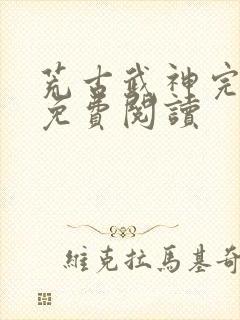 荒古武神完
免費閱讀
維克拉馬基奇